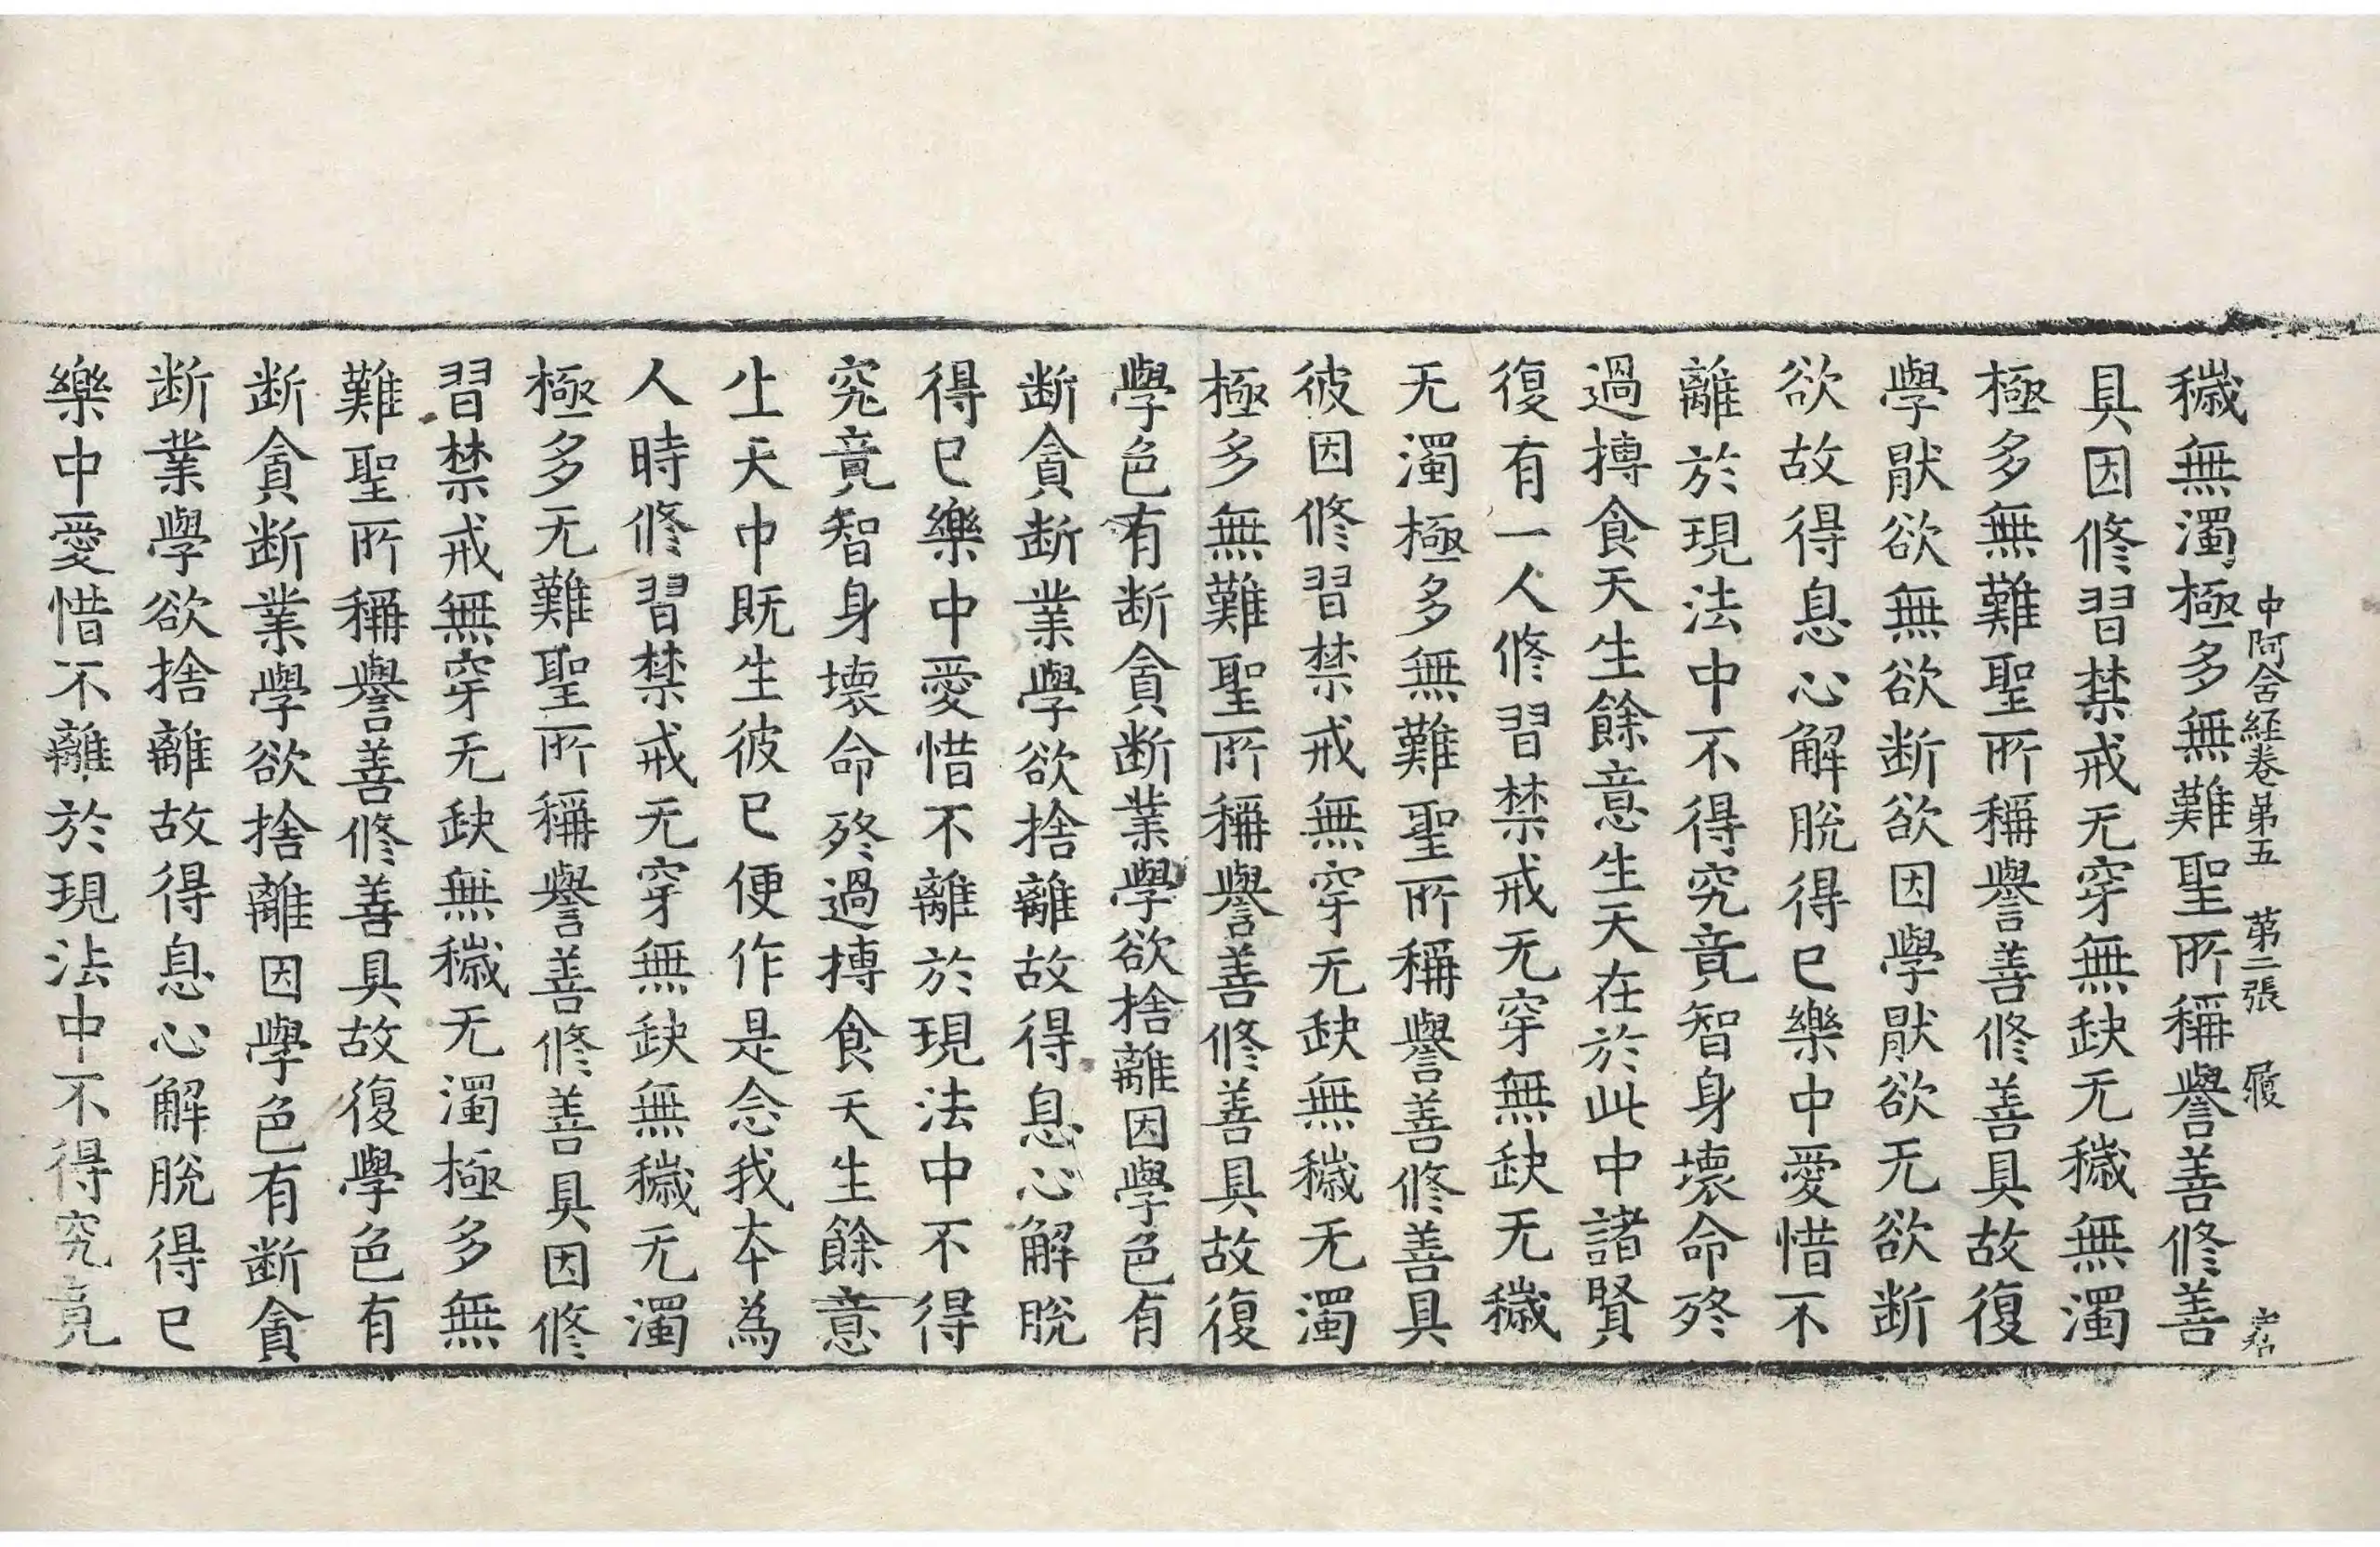 中阿含経卷第五　第二張　履
穢無濁極多無難聖所稱譽善修善
具因修習禁戒无穿無缺无穢無濁
極多無難聖所稱譽善修善具故復
學猒欲無欲断欲因學猒欲无欲断
欲故得息心解脫得已樂中愛惜不
離於現法中不得究竟智身壞命終
過摶食天生餘意生天在於此中諸賢
復有一人修習禁戒无穿無缺无穢
无濁極多無難聖所稱譽善修善具
彼因修習禁戒無穿无缺無穢无濁
極多無難聖所稱譽善修善具故復
學色有断貪断業學欲捨離因學色有
断貪断業學欲捨離故得息心解脫
得已樂中愛惜不離於現法中不得
究竟智身壞命終過摶食天生餘意
生天中既生彼已便作是念我本為
人時修習禁戒无穿無缺無穢无濁
極多无難聖所稱譽善修善具因修
習禁戒無穿无缺無穢无濁極多無
難聖所稱譽善修善具故復學色有
断貪断業學欲捨離因學色有断貪
断業學欲捨離故得息心解脫得已
樂中愛惜不離於現法中不得究竟